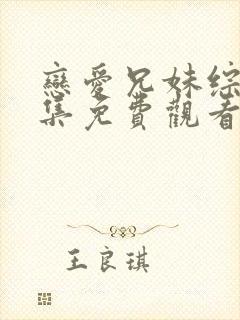 戀愛兄妹綜
集免費觀看
王良琪